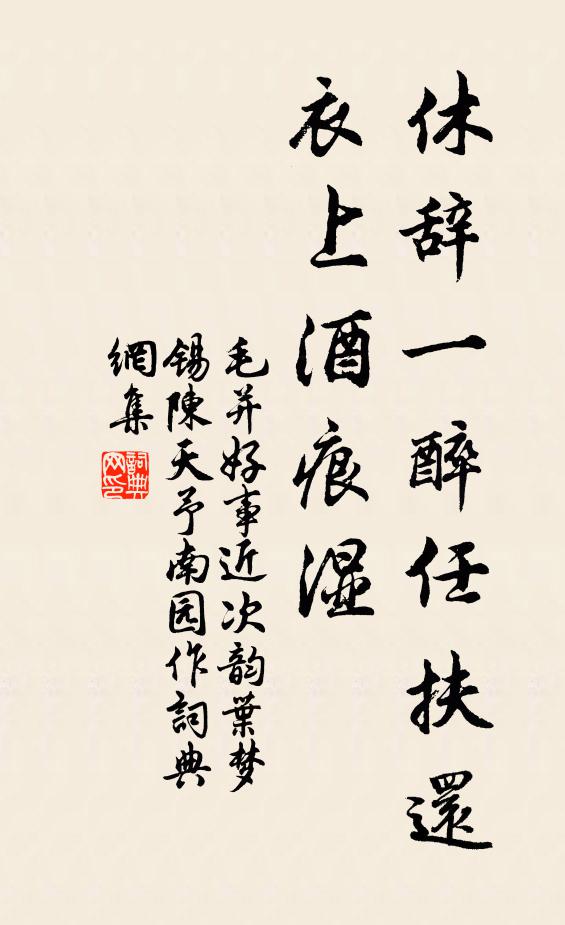 休辞一醉任扶還
衣上酒痕湿
毛并好事近次韵葉梦
锡陳天予南园作詞典
網集
詞典网印